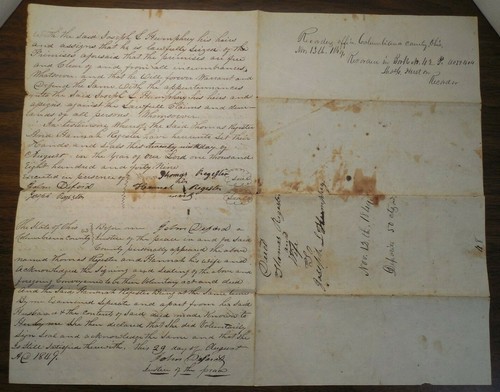 with the said Joseph L Humphrey his heirs
and assigns that he is Lawfully Seized of the
Premises aforesaid that the premises are free
and Clear of and from all incumbrances
Whatsoever and that he will forever Warrant and
Defend the Same with the appurtenances
unto the Said Joseph L Humphrey his heirs and
assigns against the Lawfull Claims and dem
lands of all persons Whomsoever
In Testimony Whereof the Said Thomas Register
And Hannah Register have hereunto Set their
Hands and Seals this day of
August in the year of our Lord one thousand
Eight hundred and forty Nine
Executed in presence of
Thomas Register
her
Hannah Register
mark
John Deford
Register
The State of Ohio
Before me John Deford a
Columbiana County
Justice of the peace in and for Said
County personally appeared the above
named Thomas Register and Hannah his wife and
acknowledged the Signing and Sealing of the above and
foregoing Conveyance to be their Voluntary act and deed
and the Said Hannah Register being at the Same time
by me Examined Seperate and apart from his Said
Husband & the contents of Said deed made Known to
her by me She then declared that She did Voluntarily
Sign Seal and acknowledge the Same and that She
is Still Satisfied therewith this 29 day of August
AD 1849.
John Deford
Justice of the peace
Recorders office Columbiana County Ohio
Nov. 13th 1849
Recorded in Book No 42 P.
Recorder
Deed
Thomas Register
and
Wife
To
Joseph L Humphrey
Nov 13th 1849